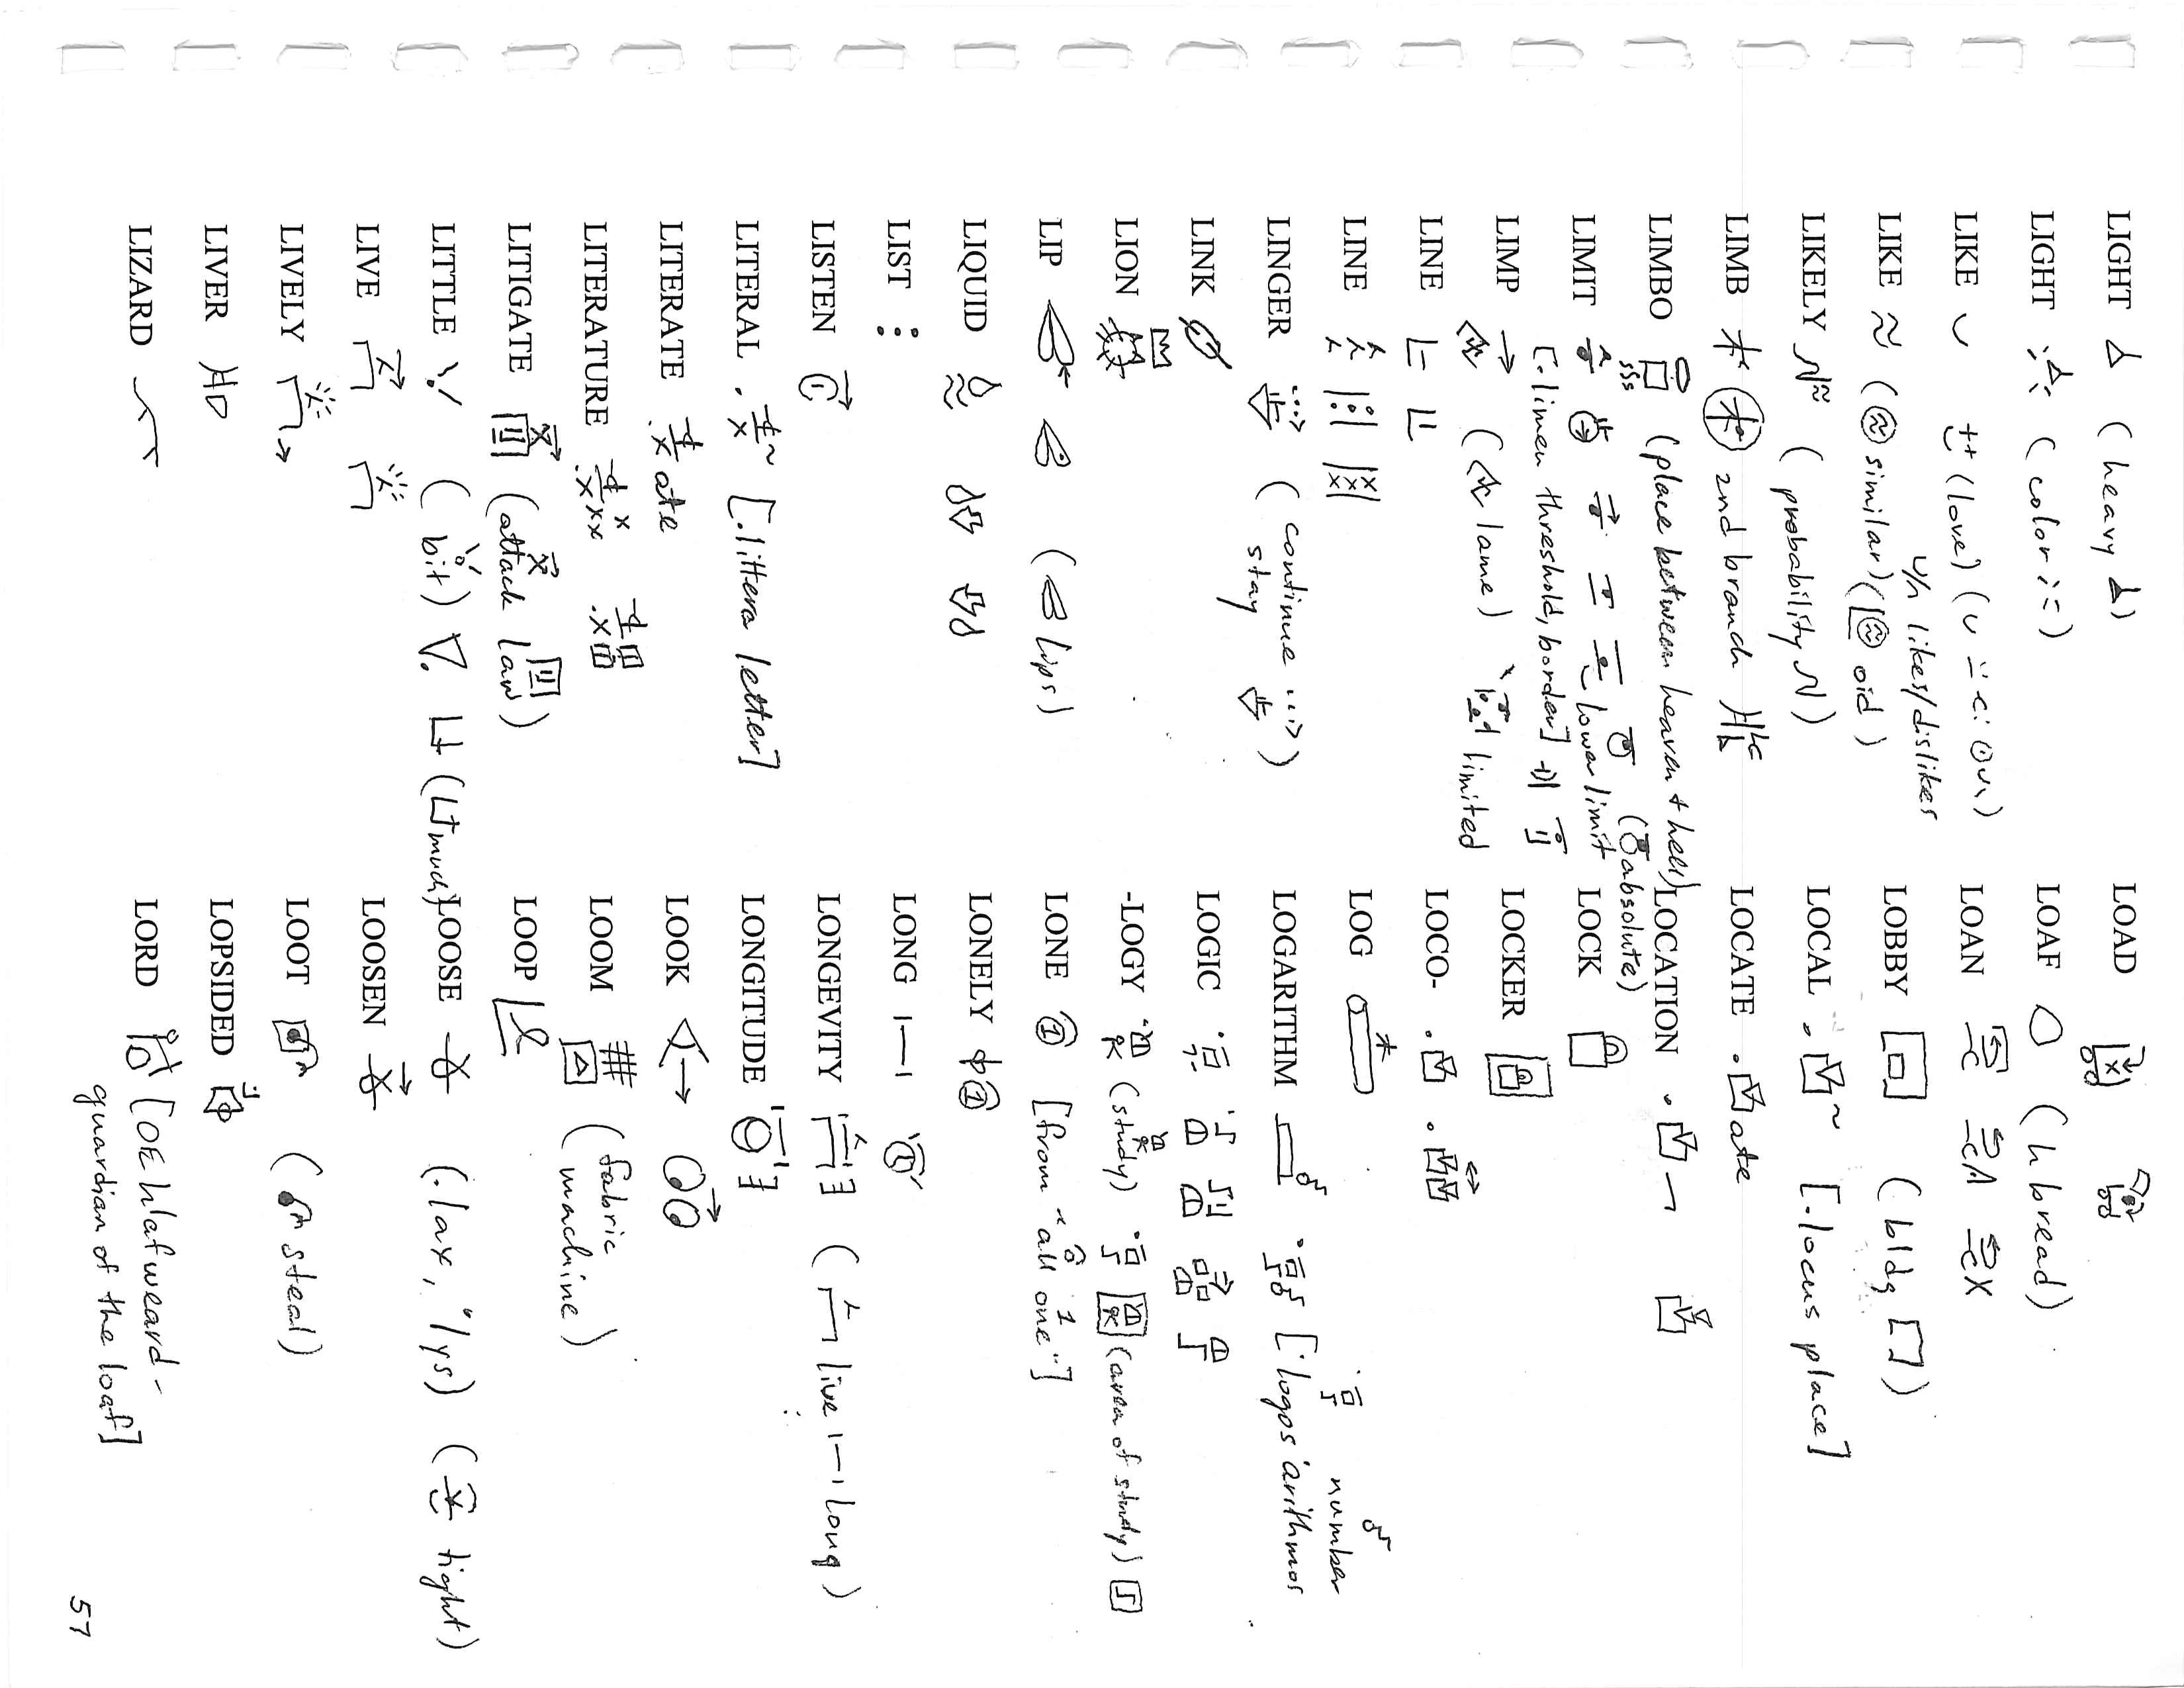 LIGHT (heavy)
LIGHT (color)
LIKE (love)
likes/dislikes
LIKE (similar) (oid)
LIKELY (probability)
LIMB 2nd branch
LIMBO (place between heaven + hell)
(absolute)
LIMIT lower limit
[.limen threshold, border]
limited
LIMP (lame)
LINE
LINE
LINGER (continue)
stay
LINK
LION
LIP (lips)
LIQUID
LIST
LISTEN
LITERAL [.littera letter]
LITERATE ate
LITERATURE
LITIGATE (attack law)
LITTLE (bit) (much)
LIVE
LIVELY
LIVER
LIZARD
LOAD
LOAF (h bread)
LOAN
LOBBY (bldg)
LOCAL [.locus place]
LOCATE ate
LOCATION
LOCK
LOCKER
LOCO-
LOG
number
LOGARITHM [logos arithmos
LOGIC
-LOGY (study) (area of study)
LONE [from "all one"]
LONELY
LONG
LONGEVITY (live long)
LONGITUDE
LOOK
LOOM (fabric
machine)
LOOP
LOOSE (.lax, "lys) (tight)
LOOSEN
LOOT (steal)
LOPSIDED
LORD [OE hlafweard-
guardian of the loaf]
57